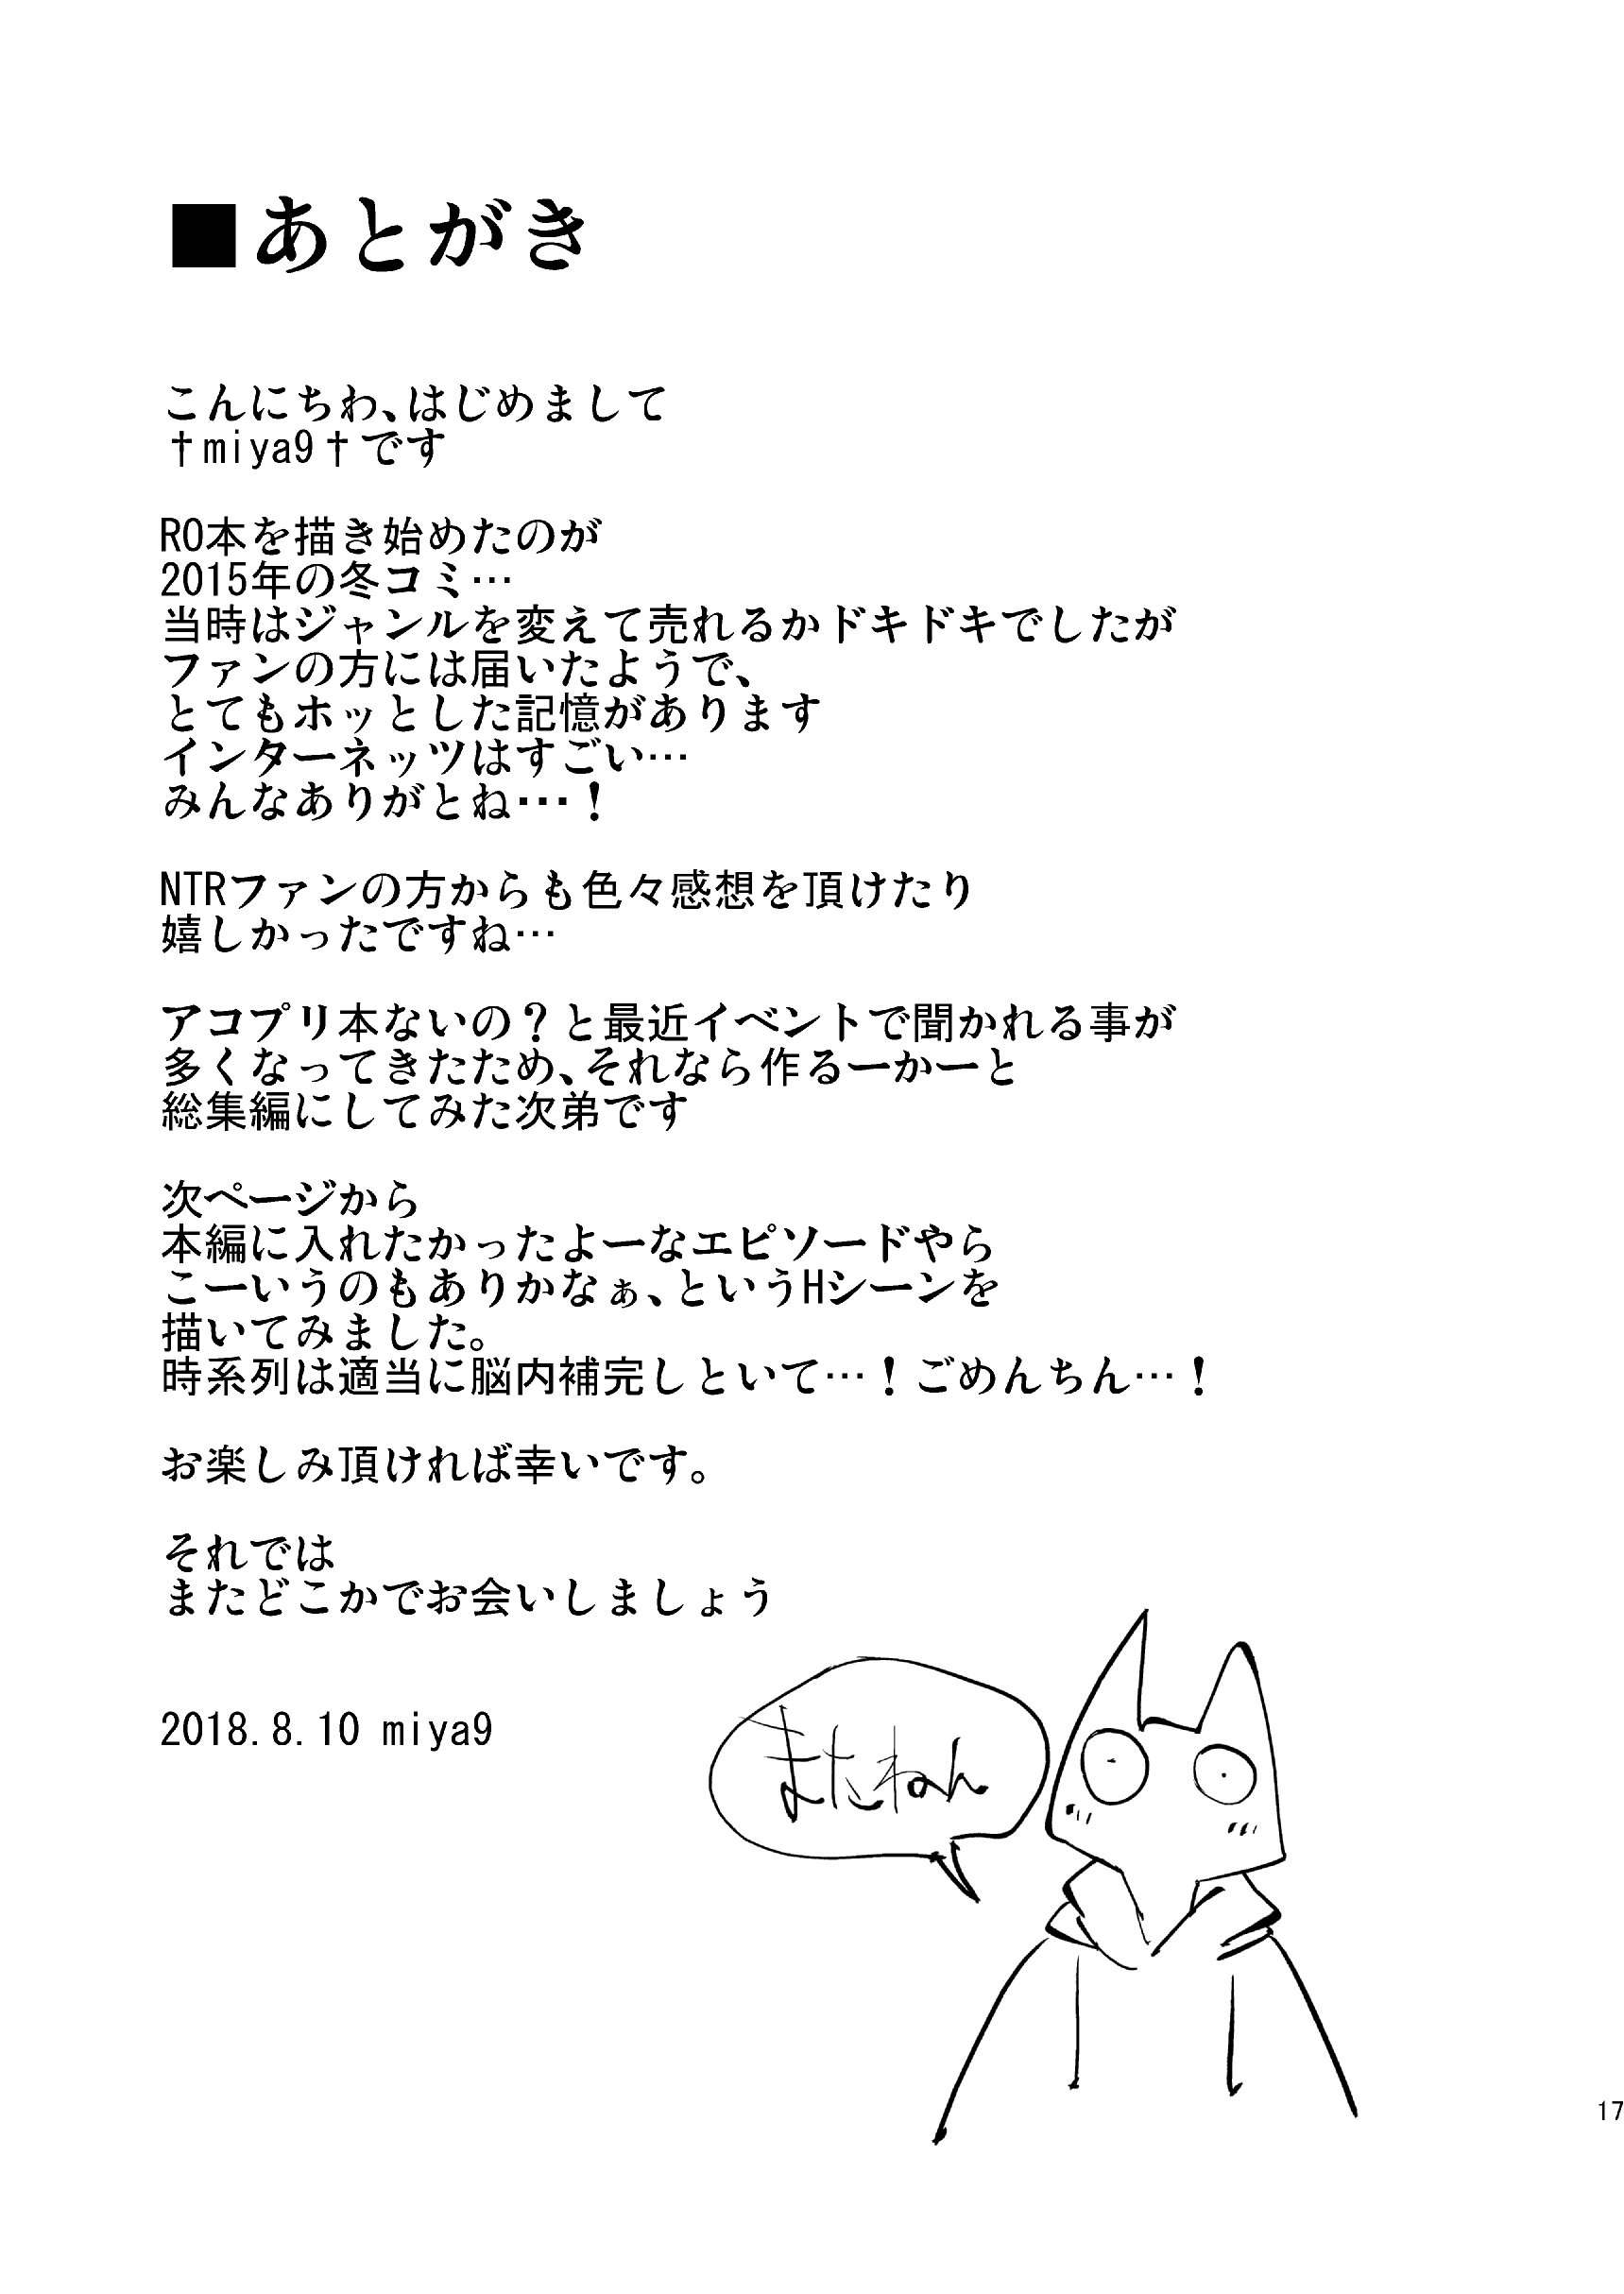 ■あとがき
こんにちわ、はじめまして
†miya9†です
RO本を描き始めたのが
2015年の冬コミ…
当時はジャンルを変えて売れるかドキドキでしたが
ファンの方には届いたようで、
とてもホッとした記憶があります
インターネッツはすごい…
みんなありがとね・・・！
NTRファンの方からも色々感想を頂けたり
嬉しかったですね…
アコプリ本ないの？と最近イベントで聞かれる事が
多くなってきたため、それなら作るーかーと
総集編にしてみた次弟です
次ページから
本編に入れたかったよーなエピソードやら
こーいうのもありかなぁ、というHシーンを
描いてみました。
時系列は適当に脳内補完しといて…！ごめんちん…！
お楽しみ頂ければ幸いです。
それでは
またどこかでお会いしましょう
2018.8.10 miya9
またねん
17